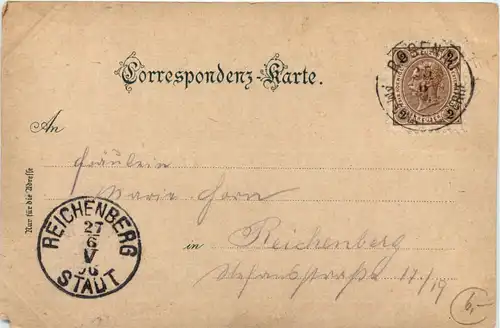 Correspondenz-Karte.
An
Fräulein
Marie Horn
in Reichenberg
Stefansstraße 17/19
Nur für die Adresse
REICHENBERG
27
6
V
STADT
6,-